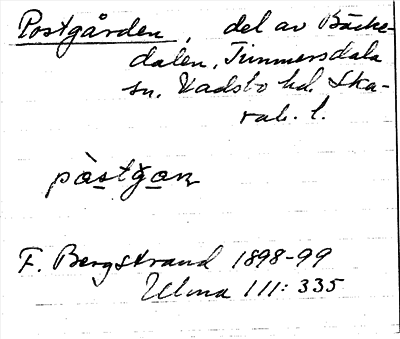 Postgården, del av Bäcke-
dalen, Timmersdala
sn. Vadsbo hd. Ska-
rab. l.
pàstgan
F. Bergstrand 1898-99
Ulma 111: 335